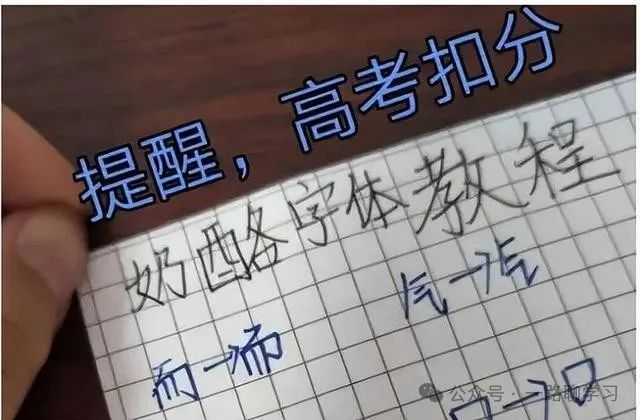 提醒，高考扣分
奶酪字体教程
气→气
而→而
口→口
公众号·一路聊学习